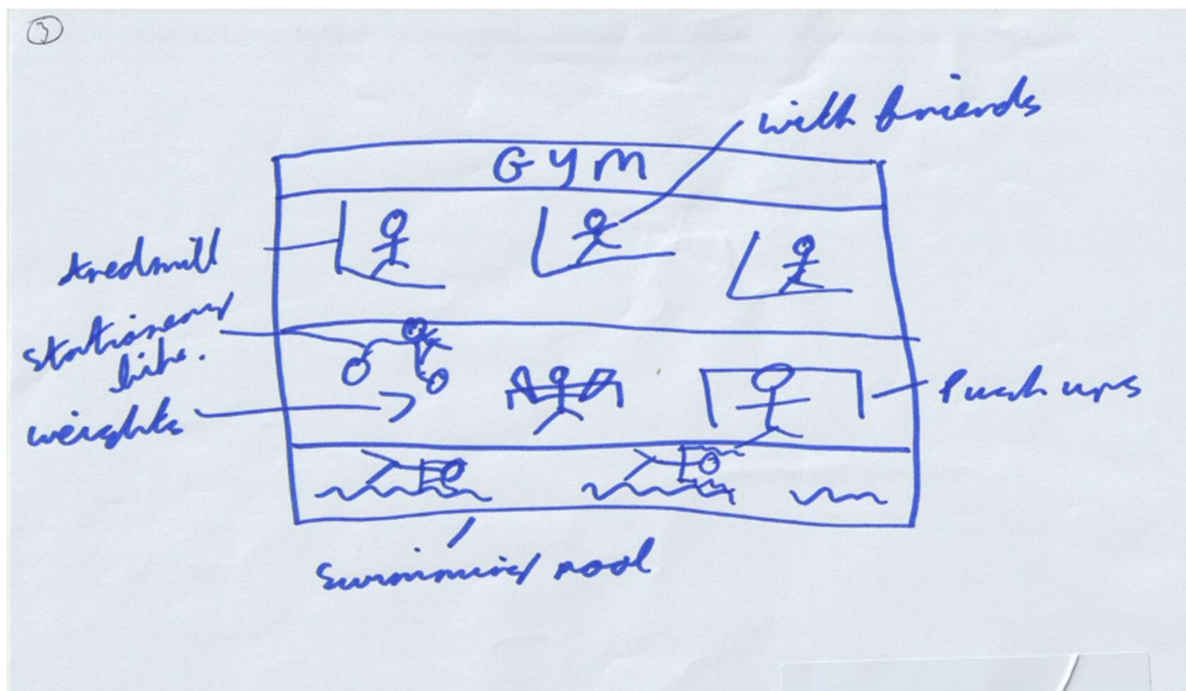 3
with friends
GYM
tredmill
stationery
bike.
weights
Push ups
Swimming pool